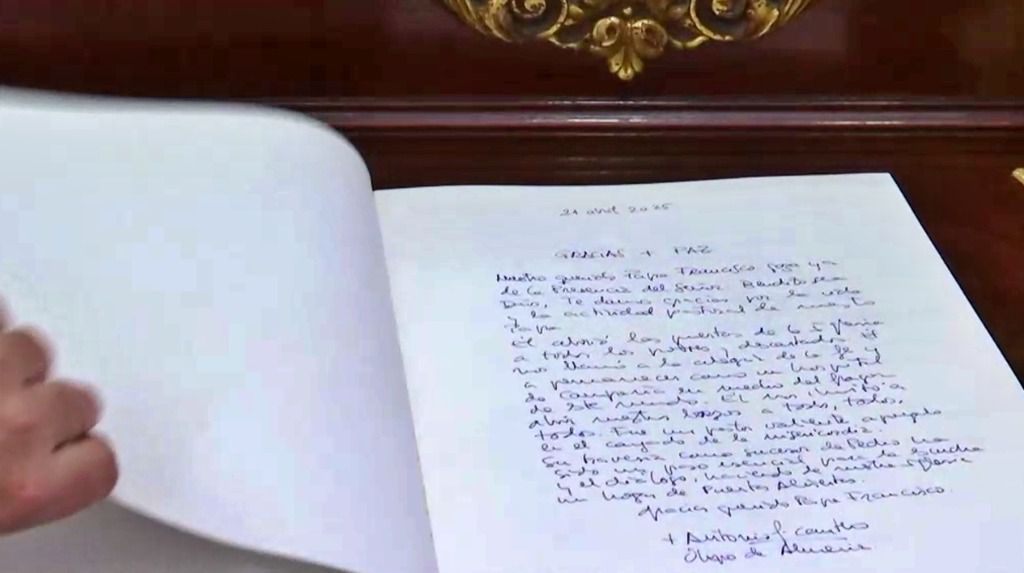 21 abril 2025
GRACIAS + PAZ
Nuestro querido Papa Francisco goza ya
de la Presencia del Señor. Bendito sea
Dios, Te damos gracias por la vida
y la actividad pastoral de nuestro
Papa.
Él abrió las puertas de la Iglesia
a todos los pobres y descartados. Él
nos llamó a la alegría de la fe y
a permanecer como un hospital
de campaña en medio del fragor
de este mundo. Él nos invitó a
abrir nuestros brazos a todos, todos,
todos. Fue un pastor valiente apoyado
en el cayado de la misericordia.
Su travesía como sucesor de Pedro ha
sido un paso esencial para la escucha
y el diálogo, haciendo de nuestra Iglesia
un hogar de Puertas Abiertas.
Gracias querido Papa Francisco.
+ Antonio G. Cantero
Obispo de Almería